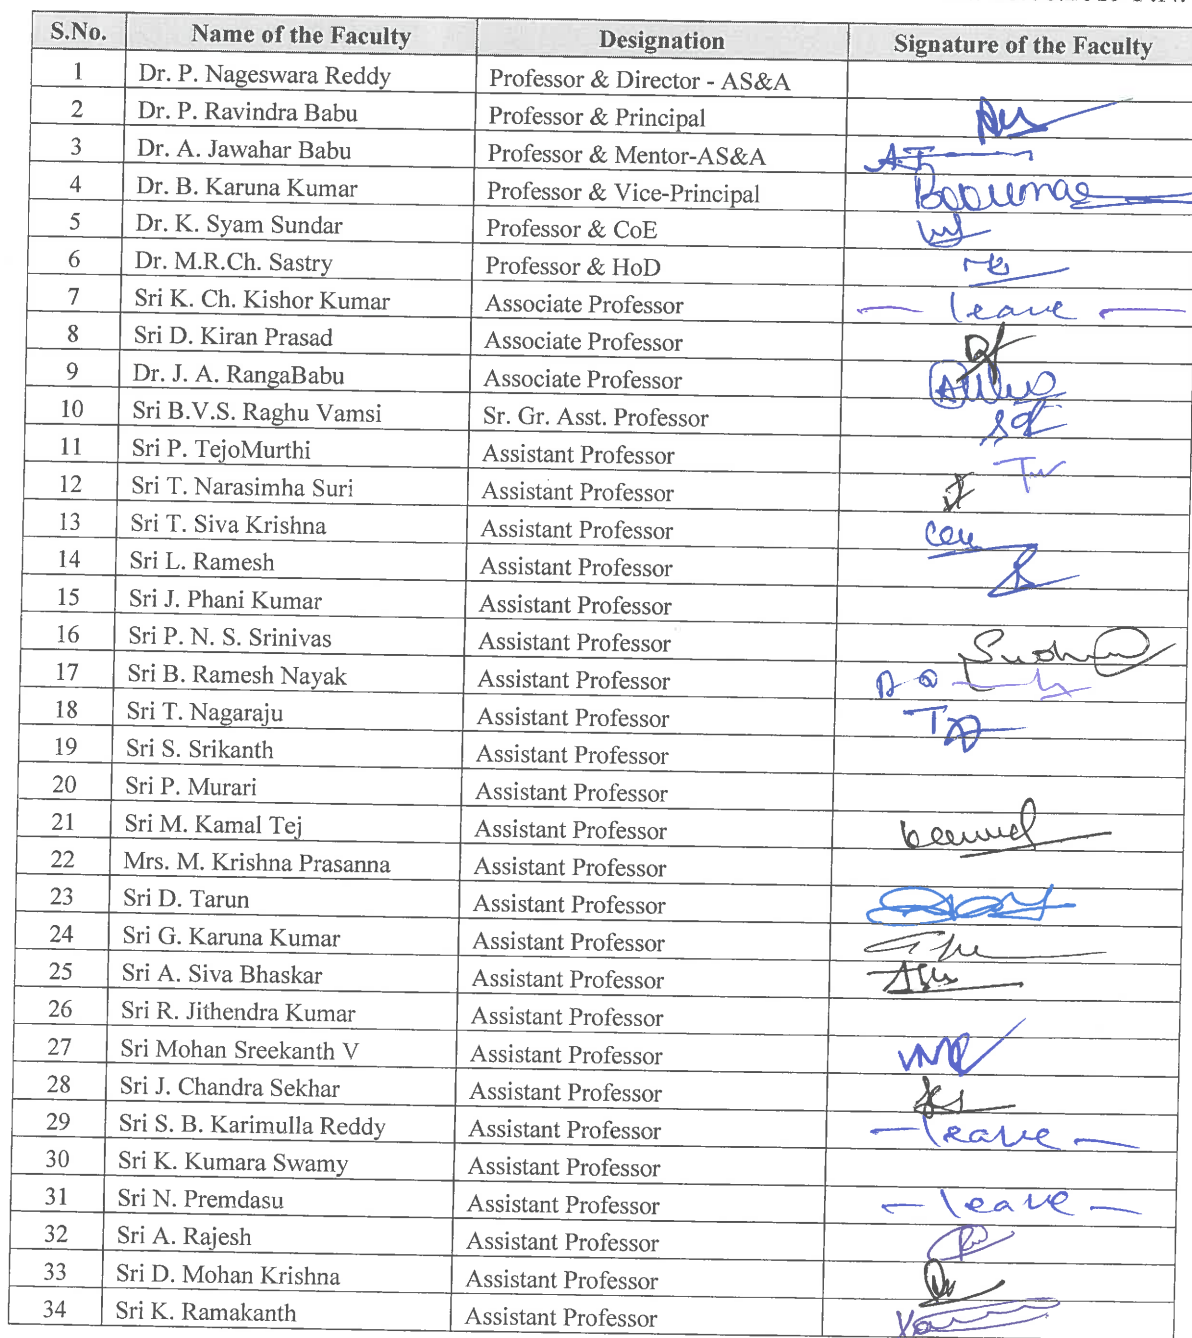 S.No. Name of the Faculty Designation Signature of the Faculty
1 Dr. P. Nageswara Reddy Professor & Director - AS&A
2 Dr. P. Ravindra Babu Professor & Principal
3 Dr. A. Jawahar Babu Professor & Mentor-AS&A
4 Dr. B. Karuna Kumar Professor & Vice-Principal
5 Dr. K. Syam Sundar Professor & CoE
6 Dr. M.R.Ch. Sastry Professor & HoD
7 Sri K. Ch. Kishor Kumar Associate Professor — leave —
8 Sri D. Kiran Prasad Associate Professor
9 Dr. J. A. RangaBabu Associate Professor
10 Sri B.V.S. Raghu Vamsi Sr. Gr. Asst. Professor
11 Sri P. TejoMurthi Assistant Professor
12 Sri T. Narasimha Suri Assistant Professor
13 Sri T. Siva Krishna Assistant Professor
14 Sri L. Ramesh Assistant Professor
15 Sri J. Phani Kumar Assistant Professor
16 Sri P. N. S. Srinivas Assistant Professor
17 Sri B. Ramesh Nayak Assistant Professor
18 Sri T. Nagaraju Assistant Professor
19 Sri S. Srikanth Assistant Professor
20 Sri P. Murari Assistant Professor
21 Sri M. Kamal Tej Assistant Professor
22 Mrs. M. Krishna Prasanna Assistant Professor
23 Sri D. Tarun Assistant Professor
24 Sri G. Karuna Kumar Assistant Professor
25 Sri A. Siva Bhaskar Assistant Professor
26 Sri R. Jithendra Kumar Assistant Professor
27 Sri Mohan Sreekanth V Assistant Professor
28 Sri J. Chandra Sekhar Assistant Professor
29 Sri S. B. Karimulla Reddy Assistant Professor — leave —
30 Sri K. Kumara Swamy Assistant Professor
31 Sri N. Premdasu Assistant Professor — leave —
32 Sri A. Rajesh Assistant Professor
33 Sri D. Mohan Krishna Assistant Professor
34 Sri K. Ramakanth Assistant Professor